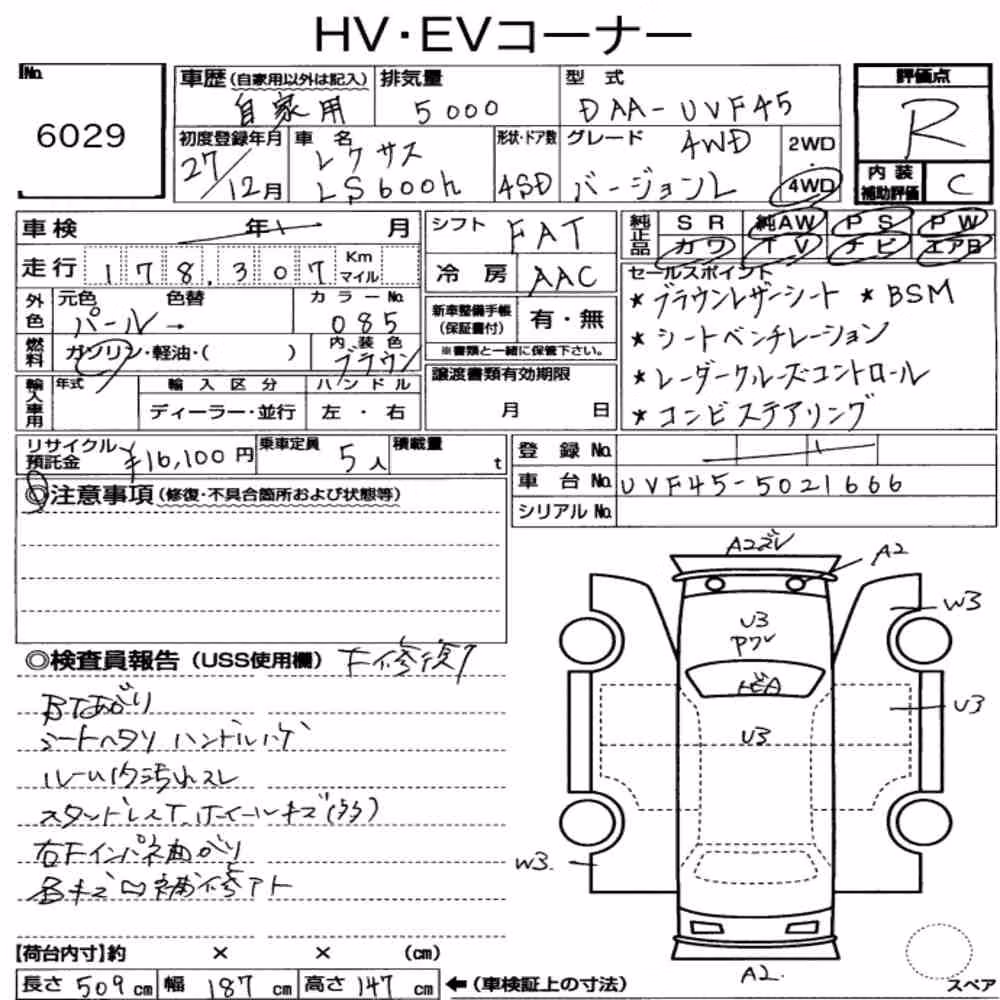 HV・EVコーナー
No.
6029
車歴(自家用以外は記入)
自家用
排気量
5000
型式
DAA-UVF45
評価点
R
初度登録年月
27/12月
車名
レクサス
LS600h
形状・ドア数
4SD
グレード
AWD
バージョンL
2WD
・
4WD
内装
補助評価
C
車検 年 月
走行 178,307 Km マイル
外色
元色 色替
パール→
カラーNo.
085
燃料
ガソリン・軽油・( )
内装色
ブラウン
輸入車用
年式
輸入区分
ディーラー・並行
ハンドル
左・右
シフト
FAT
冷房
AAC
新車整備手帳
(保証書付)
有・無
※書類と一緒に保管下さい。
譲渡書類有効期限
月 日
純正品
SR 純AW PS PW
カワ TV ナビ エアB
セールスポイント
★ブラウンレザーシート ★BSM
★シートベンチレーション
★レーダークルーズコントロール
★コンビステアリング
リサイクル
預託金
¥16,100円
乗車定員
5人
積載量
t
登録No.
車台No. UVF45-5021666
シリアルNo.
◎注意事項(修復・不具合箇所および状態等)
◎検査員報告(USS使用欄)
シートヘタリ ハンドルハゲ
ルーム内汚れスレ
ホイールキズ(多)
右Fインパネ曲がり
各キズ凹補修アト
A2ズレ
A2
W3
U3
U3
U3
W3.
A2.
【荷台内寸】約 × × (cm)
長さ 509cm 幅 187cm 高さ 147cm
←(車検証上の寸法)
スペア